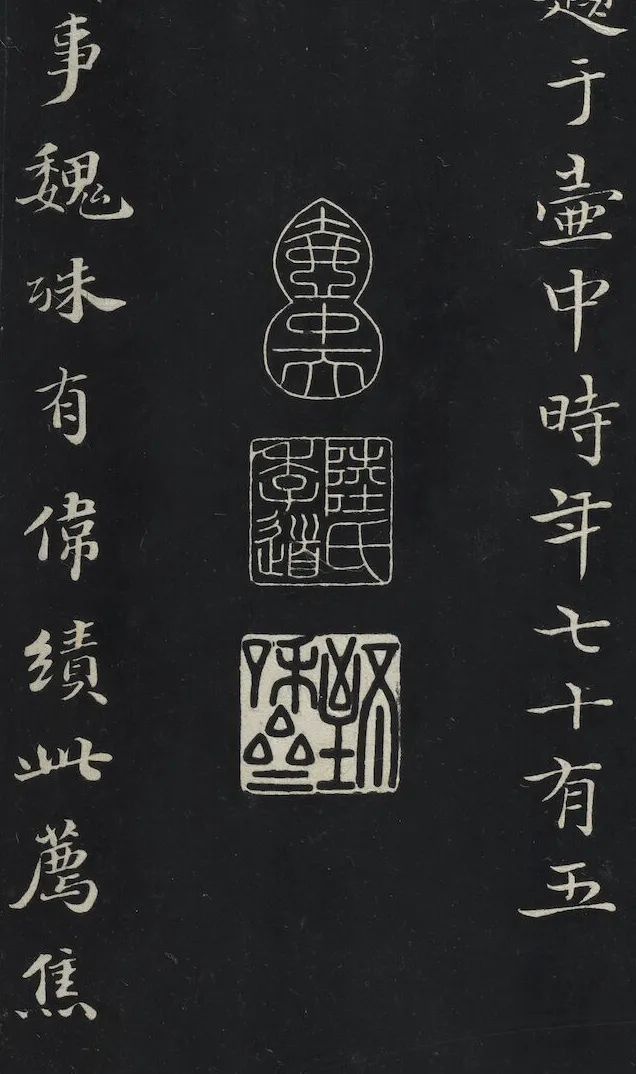 于壺中時年七十有五
壺中天
陸氏季道
事魏殊有偉績此薦焦